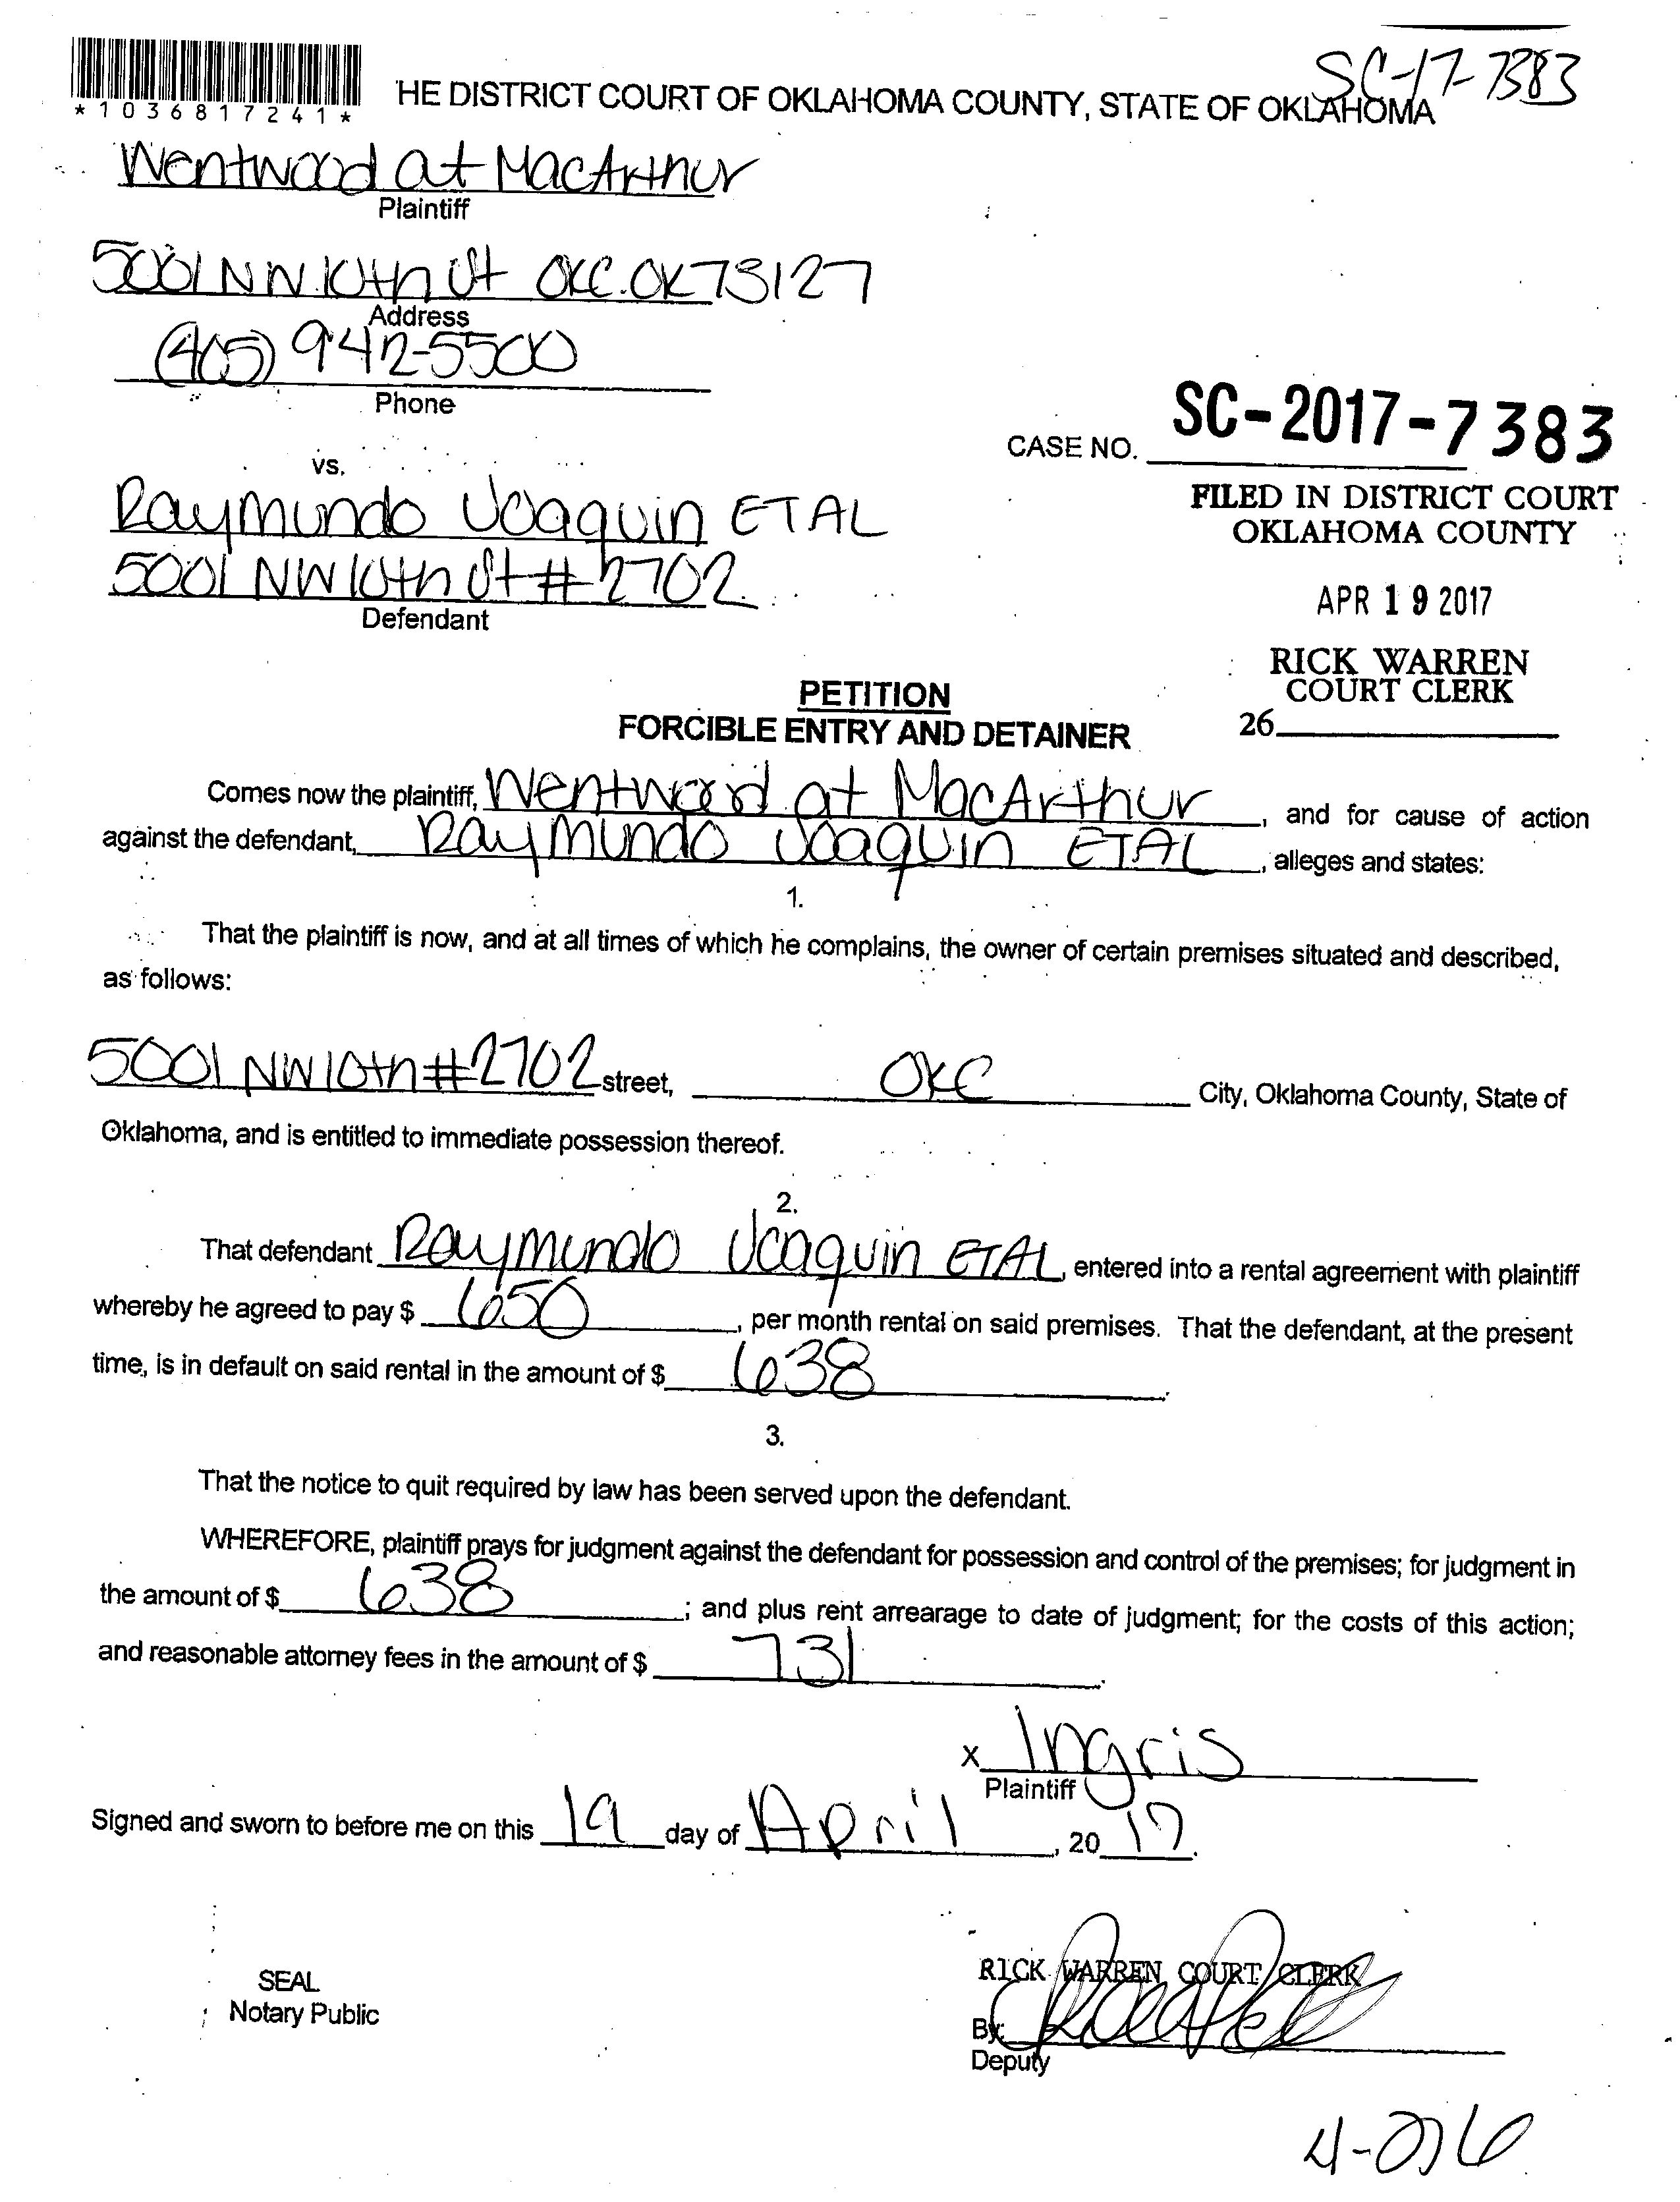 SC-17-7383
*1036817241*
HE DISTRICT COURT OF OKLAHOMA COUNTY, STATE OF OKLAHOMA
Wentwood at MacArthur
Plaintiff
5001 NW 10th St OKC. OK 73127
Address
(405) 942-5500
Phone
CASE NO. SC-2017-7383
vs.
FILED IN DISTRICT COURT
OKLAHOMA COUNTY
Raymundo Joaquin ETAL
5001 NW 10th St # 2702
Defendant
APR 19 2017
RICK WARREN
COURT CLERK
26
PETITION
FORCIBLE ENTRY AND DETAINER
Comes now the plaintiff, Wentwood at MacArthur, and for cause of action
against the defendant, Raymundo Joaquin ETAL, alleges and states:
1.
That the plaintiff is now, and at all times of which he complains, the owner of certain premises situated and described,
as follows:
5001 NW 10th #2702 street, OKC City, Oklahoma County, State of
Oklahoma, and is entitled to immediate possession thereof.
2.
That defendant Raymundo Joaquin ETAL, entered into a rental agreement with plaintiff
whereby he agreed to pay $ 650, per month rental on said premises. That the defendant, at the present
time, is in default on said rental in the amount of $ 638.
3.
That the notice to quit required by law has been served upon the defendant.
WHEREFORE, plaintiff prays for judgment against the defendant for possession and control of the premises; for judgment in
the amount of $ 638; and plus rent arrearage to date of judgment; for the costs of this action;
and reasonable attorney fees in the amount of $ 731.
x Ingris
Plaintiff
Signed and sworn to before me on this 19 day of April, 20 17.
SEAL
Notary Public
RICK WARREN COURT CLERK
By:
Deputy